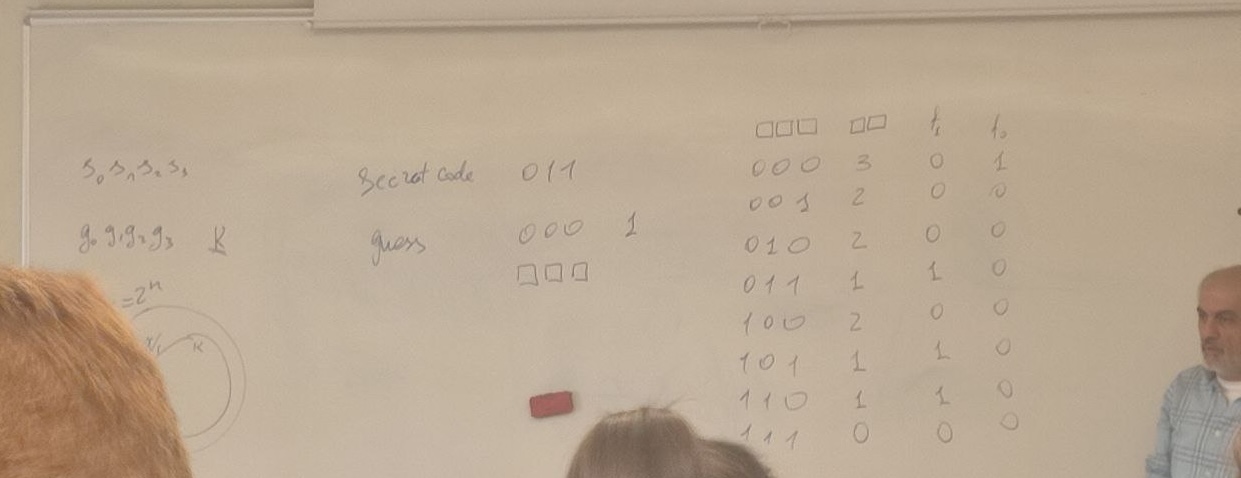 s₀s₁s₂s₃
g₀g₁g₂g₃ K
=2ⁿ
K
Secret code 011
guess 000 1
□□□
□□□ □□ f₁ f₀
000 3 0 1
001 2 0 0
010 2 0 0
011 1 1 0
100 2 0 0
101 1 1 0
110 1 1 0
111 0 0 0